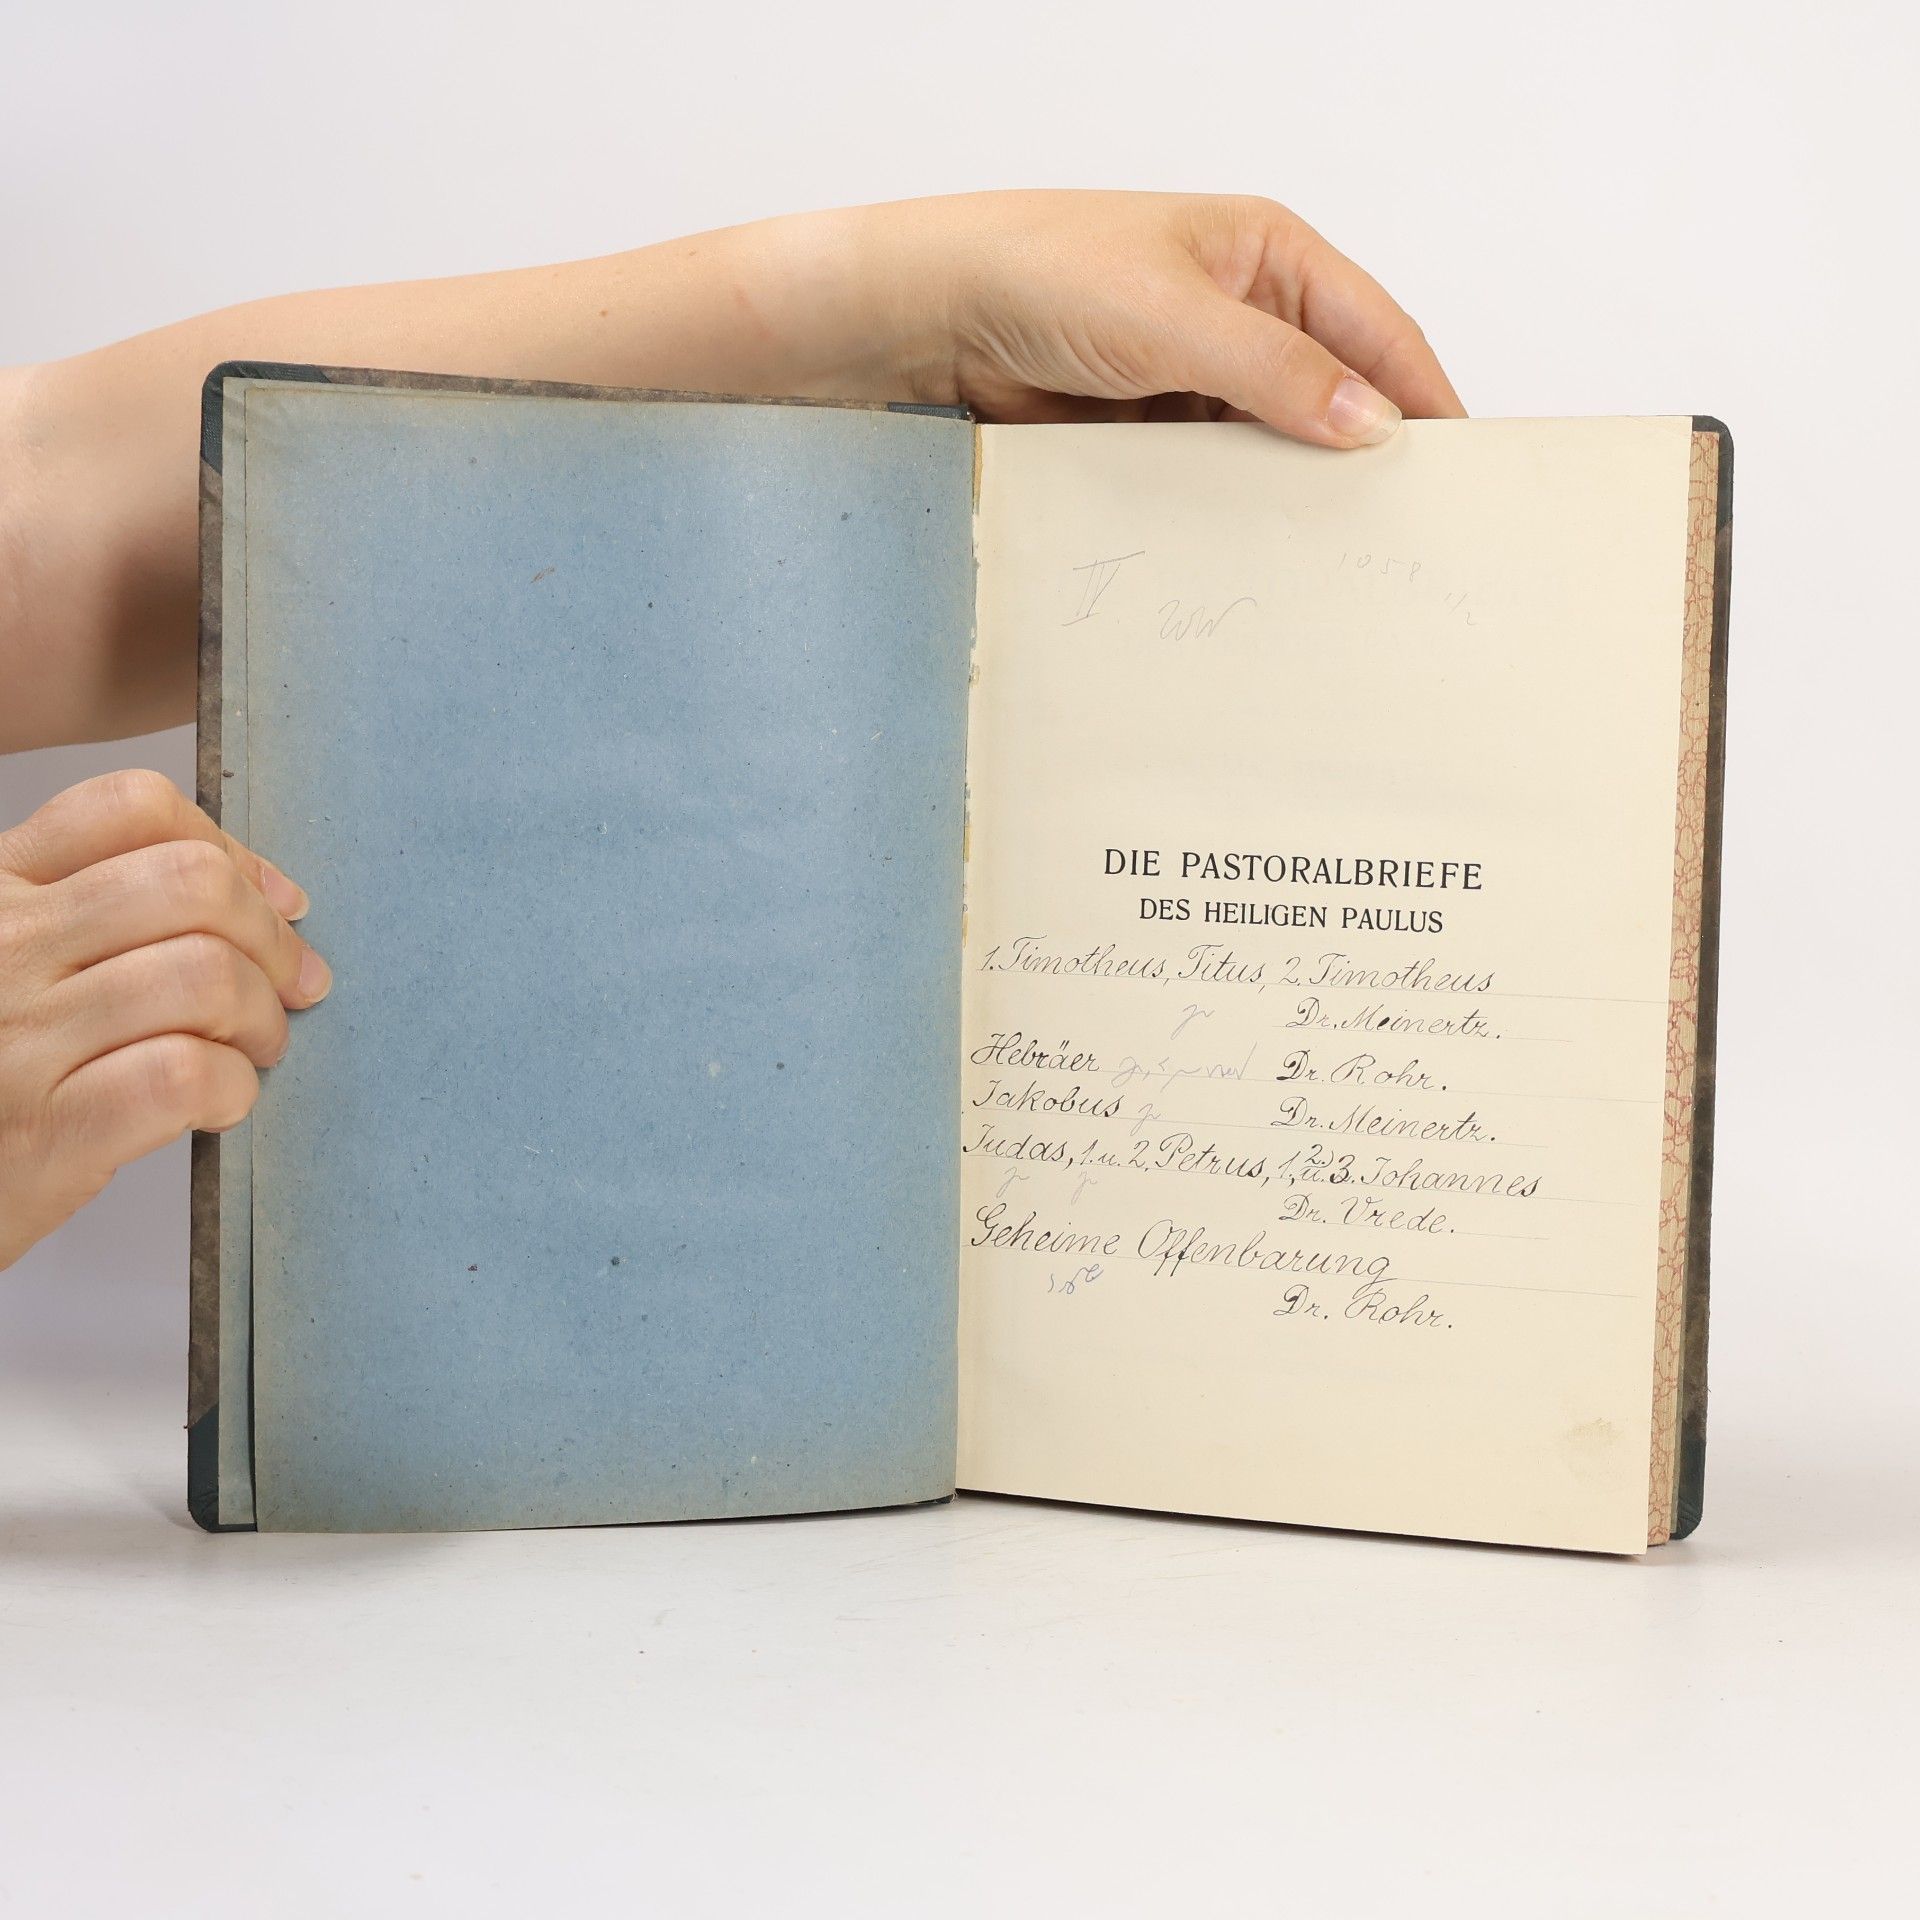 IV
1058
1/2
DIE PASTORALBRIEFE
DES HEILIGEN PAULUS
1. Timotheus, Titus, 2. Timotheus
Dr. Meinertz.
Hebräer Dr. Rohr.
Jakobus Dr. Meinertz.
Judas, 1. u. 2. Petrus, 1., 2.) u. 3. Johannes
Dr. Vrede.
Geheime Offenbarung
Dr. Rohr.